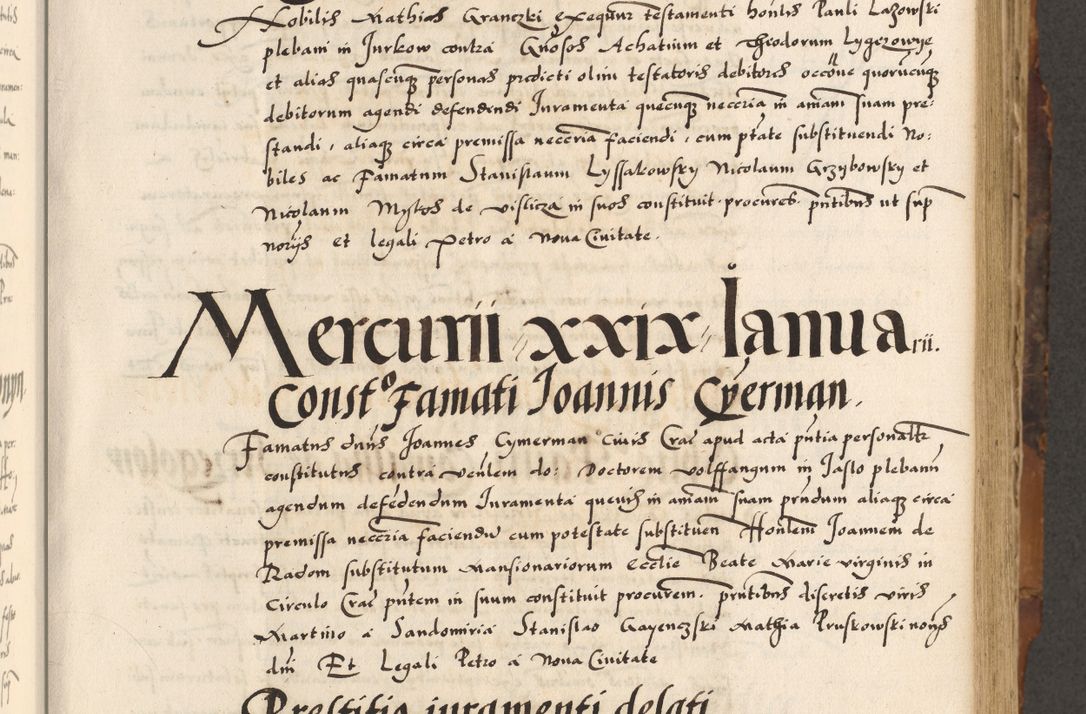 Nobilis Mathias Granczki exequutor testamenti honlis Pauli Lazowski
plebani in Jurkow contra Gnosos Achatium et Theodorum Lygezowye
et alias quascunq personas predicti olim testatoris debitores occōne quorūcunq
debitorum agendi defendendi Juramenta quecunq neccria in aniam suam pre:
standi, aliaq circa premissa neccria faciendi, cum ptate substituendi No:
biles ac Famatum Stanislaum Lyssakowsky Nicolaum Grzybowsky et
Nicolaum Myskos de vislicza in suos constituit procures. pntibus ut sup
norijs et legali Petro a Nova Civitate.
Mercurii xxix Ianuarii.
Consto Famati Joannis Cyerman.
Famatus dnus Joannes Cymerman civis Crac apud acta pntia personalr
constitutus contra venlem do: Doctorem Volffgangum in Jaslo plebanum
agendum defendendum Juramenta quevis in aniam suam prndum aliaq circa
premissa neccria faciendum cum potestate substituen Honlem Joannem de
Radom substitutum Mansionariorum Ecclie Beate Marie virginis in
Circulo Crac pntem in suum constituit procurem. pntibus discretis viris
Martino a Sandomiria Stanislao Gayenczski Mathia Pruskowski norijs
dni Et Legali Petro a Nova Civitate
Prestitio iuramenti delati